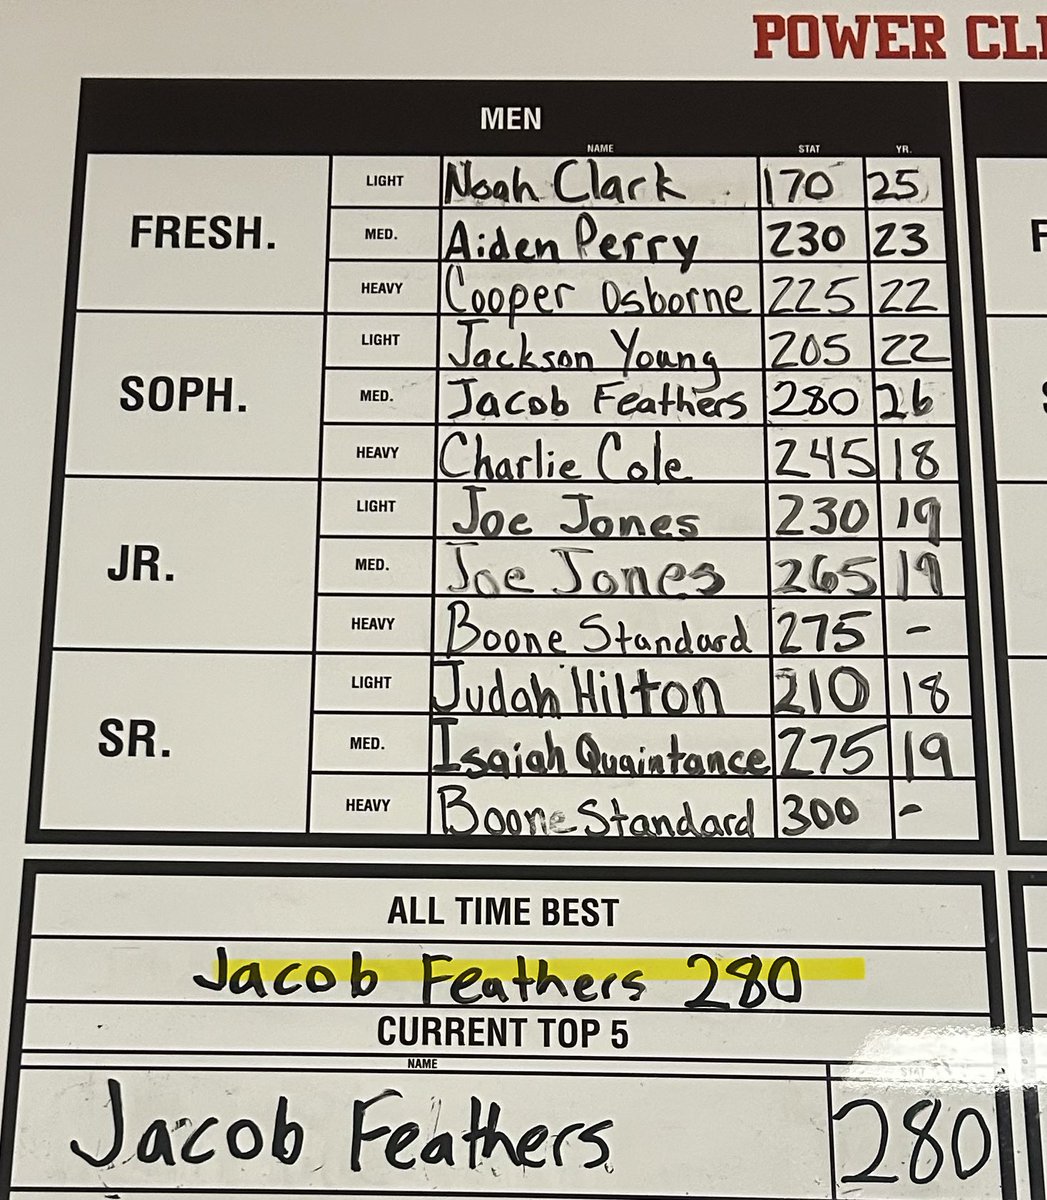 POWER CL
MEN
NAME STAT YR.
FRESH.
LIGHT Noah Clark 170 25
MED. Aiden Perry 230 23
HEAVY Cooper Osborne 225 22
SOPH.
LIGHT Jackson Young 205 22
MED. Jacob Feathers 280 26
HEAVY Charlie Cole 245 18
JR.
LIGHT Joe Jones 230 19
MED. Joe Jones 265 19
HEAVY Boone Standard 275 -
SR.
LIGHT Judah Hilton 210 18
MED. Isaiah Quaintance 275 19
HEAVY Boone Standard 300 -
ALL TIME BEST
Jacob Feathers 280
CURRENT TOP 5
NAME STAT
Jacob Feathers 280